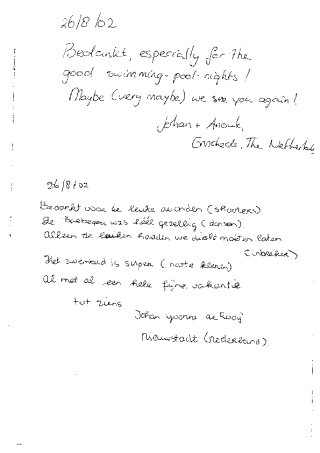 26/8/02
Bedankt, especially for the
good swimming-pool-nights!
Maybe (very maybe) we see you again!
Johan + Anouk,
Enschede, The Netherlands
26/8/02
Bedankt voor de leuke avonden
De was héél gezellig (dansen).
Alleen de hadden we dicht moeten laten
(inbreker)
Het zwembad is super (natte kleren)
Al met al een hele fijne vakantie
tot ziens
Johan Yvonne de Rooij
Nieuwstadt (Nederland).